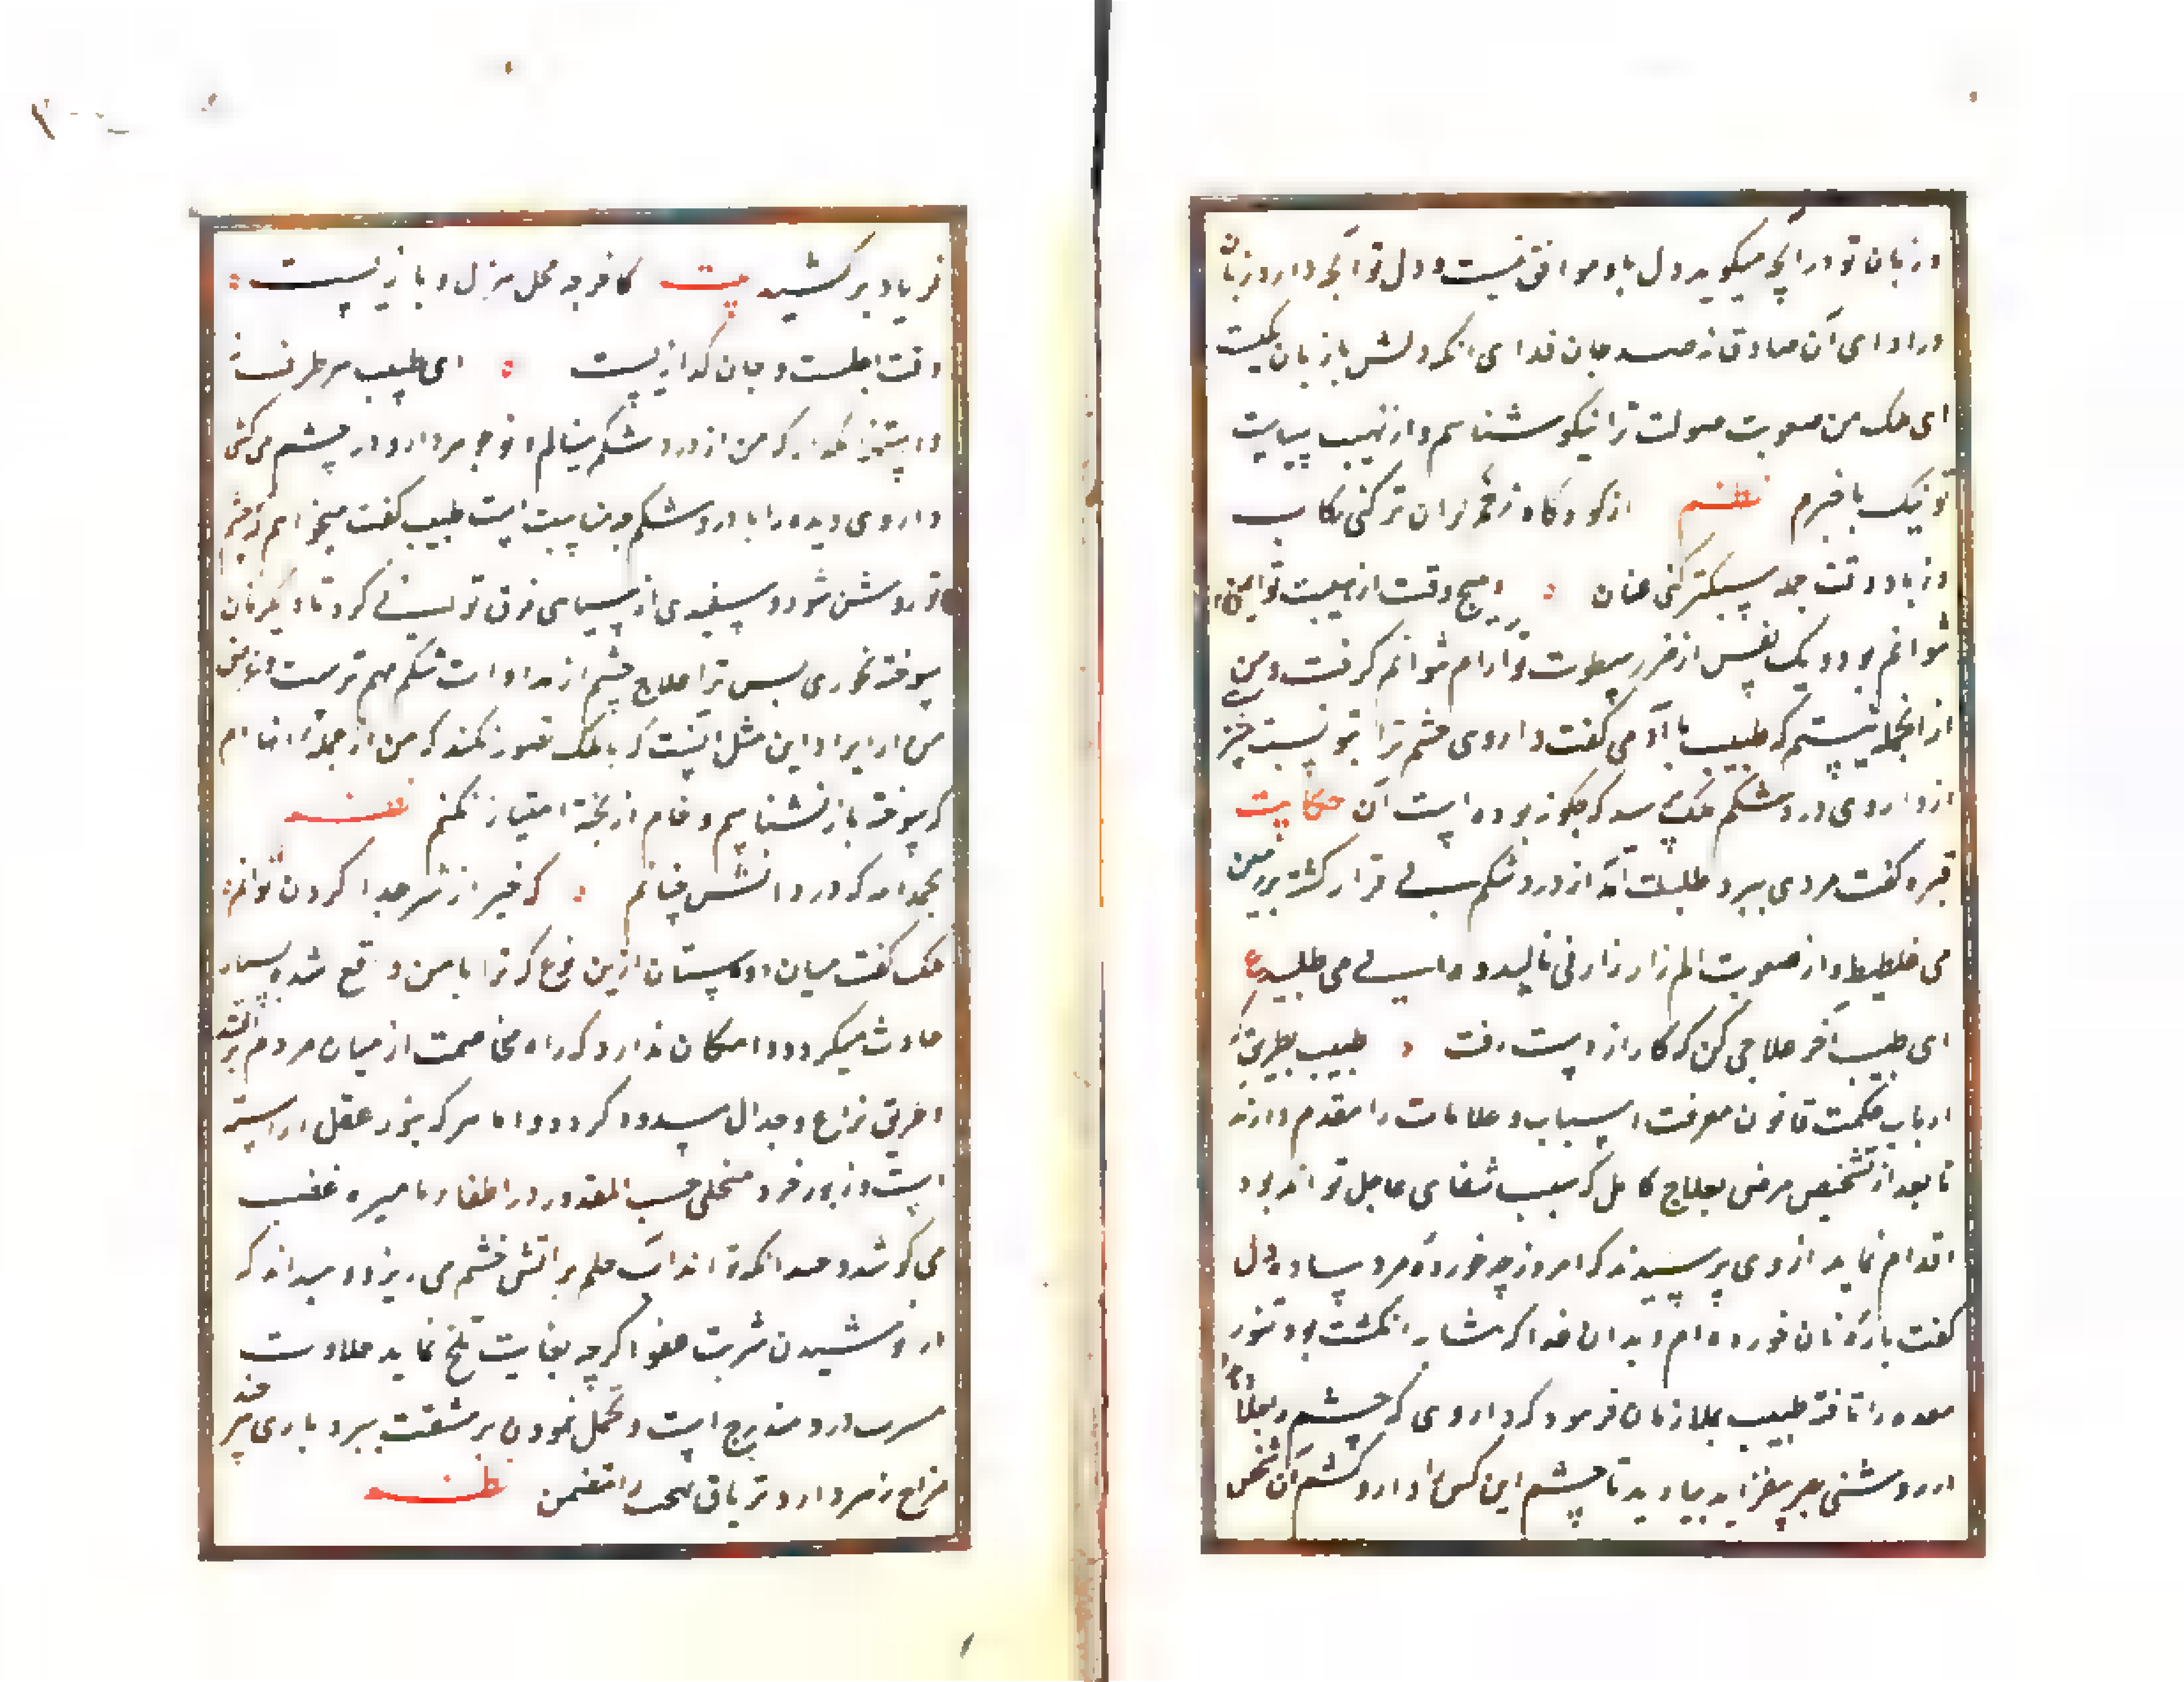 و زبان تو در آنچه میگوید دل با او موافق نیست و دل تو آنچه دارد زبان
در ادای آن صادق نه صد جان فدای آنکه دلش با زبان یکیست
ای ملک من صعوبت صولت ترا نیکو شناسم و از نهیب سیاست
تو نیک با خبرم نظم از کوه گاه زخم گران تر کنی رکاب
وز باد وقت حمله سبکتر کنی عنان و هیچ وقت از هیبت تو ایمن
نتوانم بود و یک نفس از ضرر سطوت تو آرام نتوانم گرفت و من
از آنجمله نیستم که طبیب با آدمی گفت داروی چشم ترا بتو نسبت
از داروی درد شکم ملک پرسید که چگونه بوده است آن حکایت
قبره گفت مردی ببرد طلبیب آمد از درد شکم بی قرار گشته بر زمین
می غلطید و از صعوبت الم زار زار می نالید و دوایی می طلبید ع
ای طبیب آخر علاجی کن که کار از دست رفت طبیب بطریق
ارباب حکمت قانون معرفت اسباب و علامات را مقدم دارند
تا بعد از تشخیص مرض بعلاج کامل که سبب شفای عاجل تواند بود
اقدام نماید از وی پرسید که امروز چه خورده مرد ساده دل
گفت پاره نان خورده ام و بدان غذا که مشابه انگشت بود تنور
معده را تافته طبیب بملازمان فرمود که داروی که چشم را جلا
و روشنی بصر بیفزاید بیاورید تا چشم این کس را دارو کشم آن شخص
فریاد بر کشید بیت کاخر چه محل هزل و بازیست
وقت اجلست و جان گدازیست ای طبیب بر طرف
و استهزا بگذار که من از درد شکم مینالم و تو جوهر دارو در چشم می کشی
داروی دیده را با درد شکم چه مناسبت است طبیب گفت میخواهم که چشم
تو روشن شود و سپیدی از سیاهی فرق توانی کرد تا دیگر نان
سوخته نخوری پس ترا علاج چشم از مداوات شکم مهم ترست و غرض
من از ایراد این مثل آنست که ملک تصور نکند که من از جمله آنها ام
که سوخته باز نشناسم و خام از پخته امتیاز نکنم نظم
بحمدالله که در دانش چنانم که خیر از شر جدا کردن توانم
ملک گفت میان دوستان ازین نوع که ترا با من واقع شد بسیار
حادث میگردد و امکان ندارد که راه مخاصمت از میان مردم بر افتد
و طریق نزاع و جدال مسدود گردد و اما هر که بنور عقل آراسته
است و بزیور خرد متحلی حسب المقدور در اطفاء نایره غضب
می کوشد و چندانکه تواند آب حلم بر آتش خشم می ریزد و میداند که
در نوشیدن شربت عفو اگر چه بغایت تلخ نماید حلاوت
مسرت درو مندرج است و تحمل نمودن بر مشقت بردباری هر چند
مزاج زهر دارد تریاق راحت را متضمن نظم